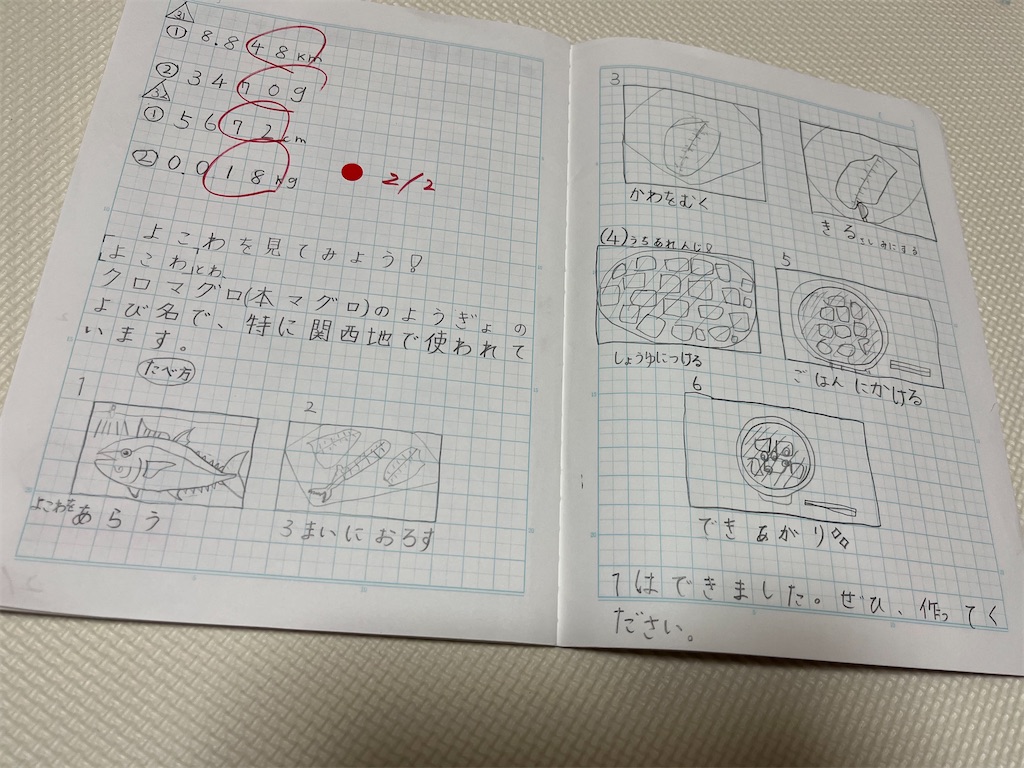 31
① 8.848km
② 3470g
① 5672cm
② 0.018kg
2/2
よこわを見てみよう!
よこわとわ、
クロマグロ(本マグロ)のようぎょの
よび名で、特に関西地で使われて
います。
たべ方
1
よこわをあらう
2
3まいにおろす
3
かわをむく
きるさしみにする
(4)うちあれんじ!
しょうゆにつける
5
ごはんにかける
6
できあがり
1はできました。ぜひ、作ってく
ださい。